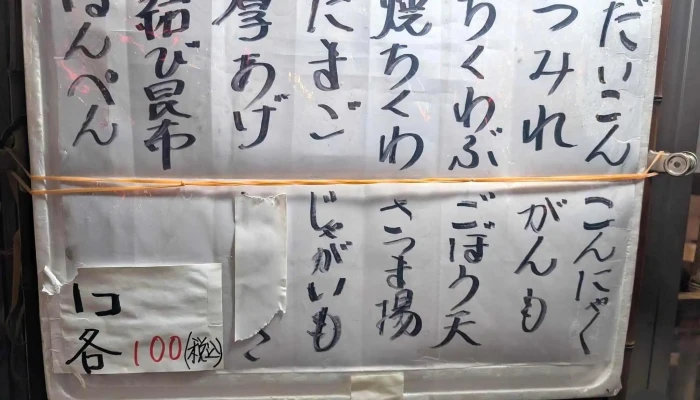 だいこん
つみれ
ちくわぶ
焼ちくわ
たまご
厚あげ
結び昆布
はんぺん
こんにゃく
がんも
ごぼう天
さつま揚
じゃがいも
さ
1コ
各100(税込)